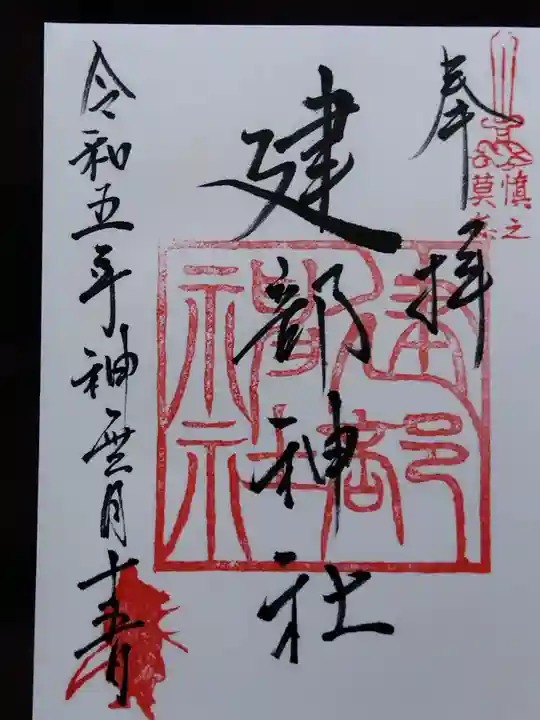 奉拝
慎之
莫怠
建部神社
建部神社
令和五年神無月